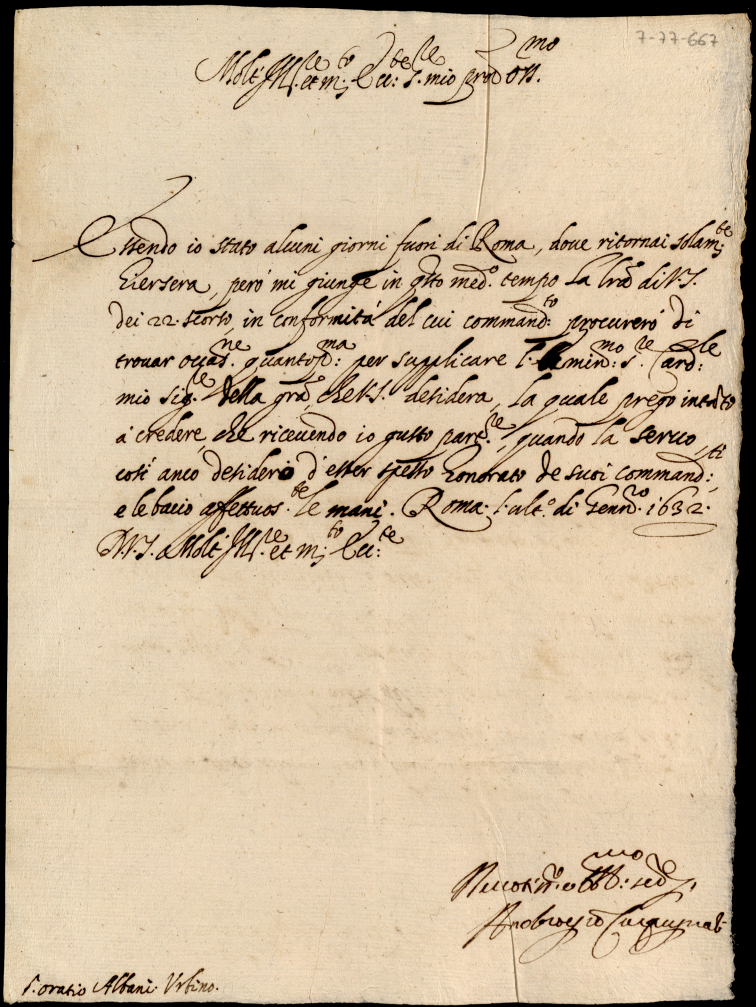 7-77-667
Molt' Ill.re et m.to Ecc.te S.re mio pron Oss.mo
Essendo io stato alcuni giorni fuori di Roma, dove ritornai solam.te
hiersera, però mi giunge in q̃sto med.o tempo la lr̃a di V.S.
dei 22. scorso, in conformità del cui command.to procurerò di
trovar occas.ne quantop.ma: per supplicare l'Emin.mo S.re Card.le
mio Sig.re della gra, che V.S. desidera, la quale prego intanto
à credere, che ricevendo io gusto par.re, quando la servo,
così anco desidero d'esser spesso honorato de suoi command.ti:
e le bacio affettuos.te le mani. Roma. l'ult.o di Genn.ro 1632.
D.V.S. Molt' Ill.re et m.to Ecc.te
Ser.re
Ambrogio
S. oratio Albani Urbino.